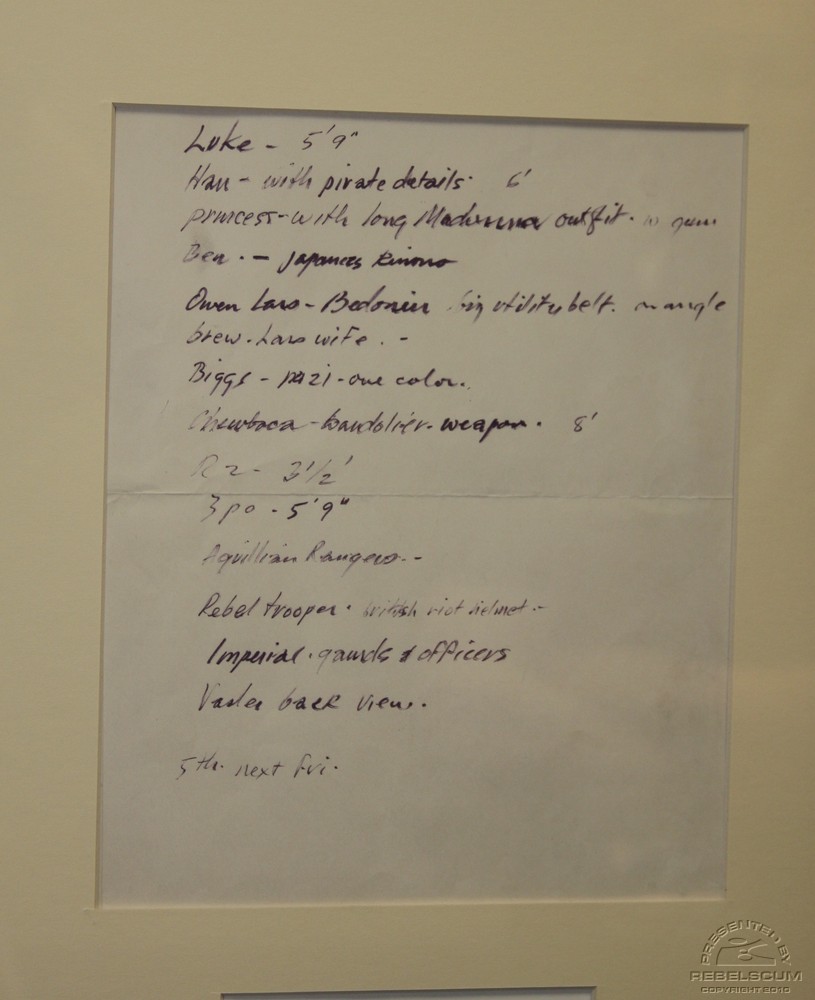 Luke - 5'9"
Han - with pirate details. 6'
princess - with long Madonna outfit.
Ben. - japanees kimono
Owen Lars - Bedonin big utility belt. on angle
brew. Lars wife. -
Biggs - nazi - one color.
Chewbaca - bandolier. weapon. 8'
R2 - 3 1/2'
3po - 5'9"
Aquillian Rangers. -
Rebel trooper. british riot helmet. -
Imperial. gaurds & officers
Vader back view.
5th. next fri.
PRESENTED BY
REBELSCUM
COPYRIGHT 2010